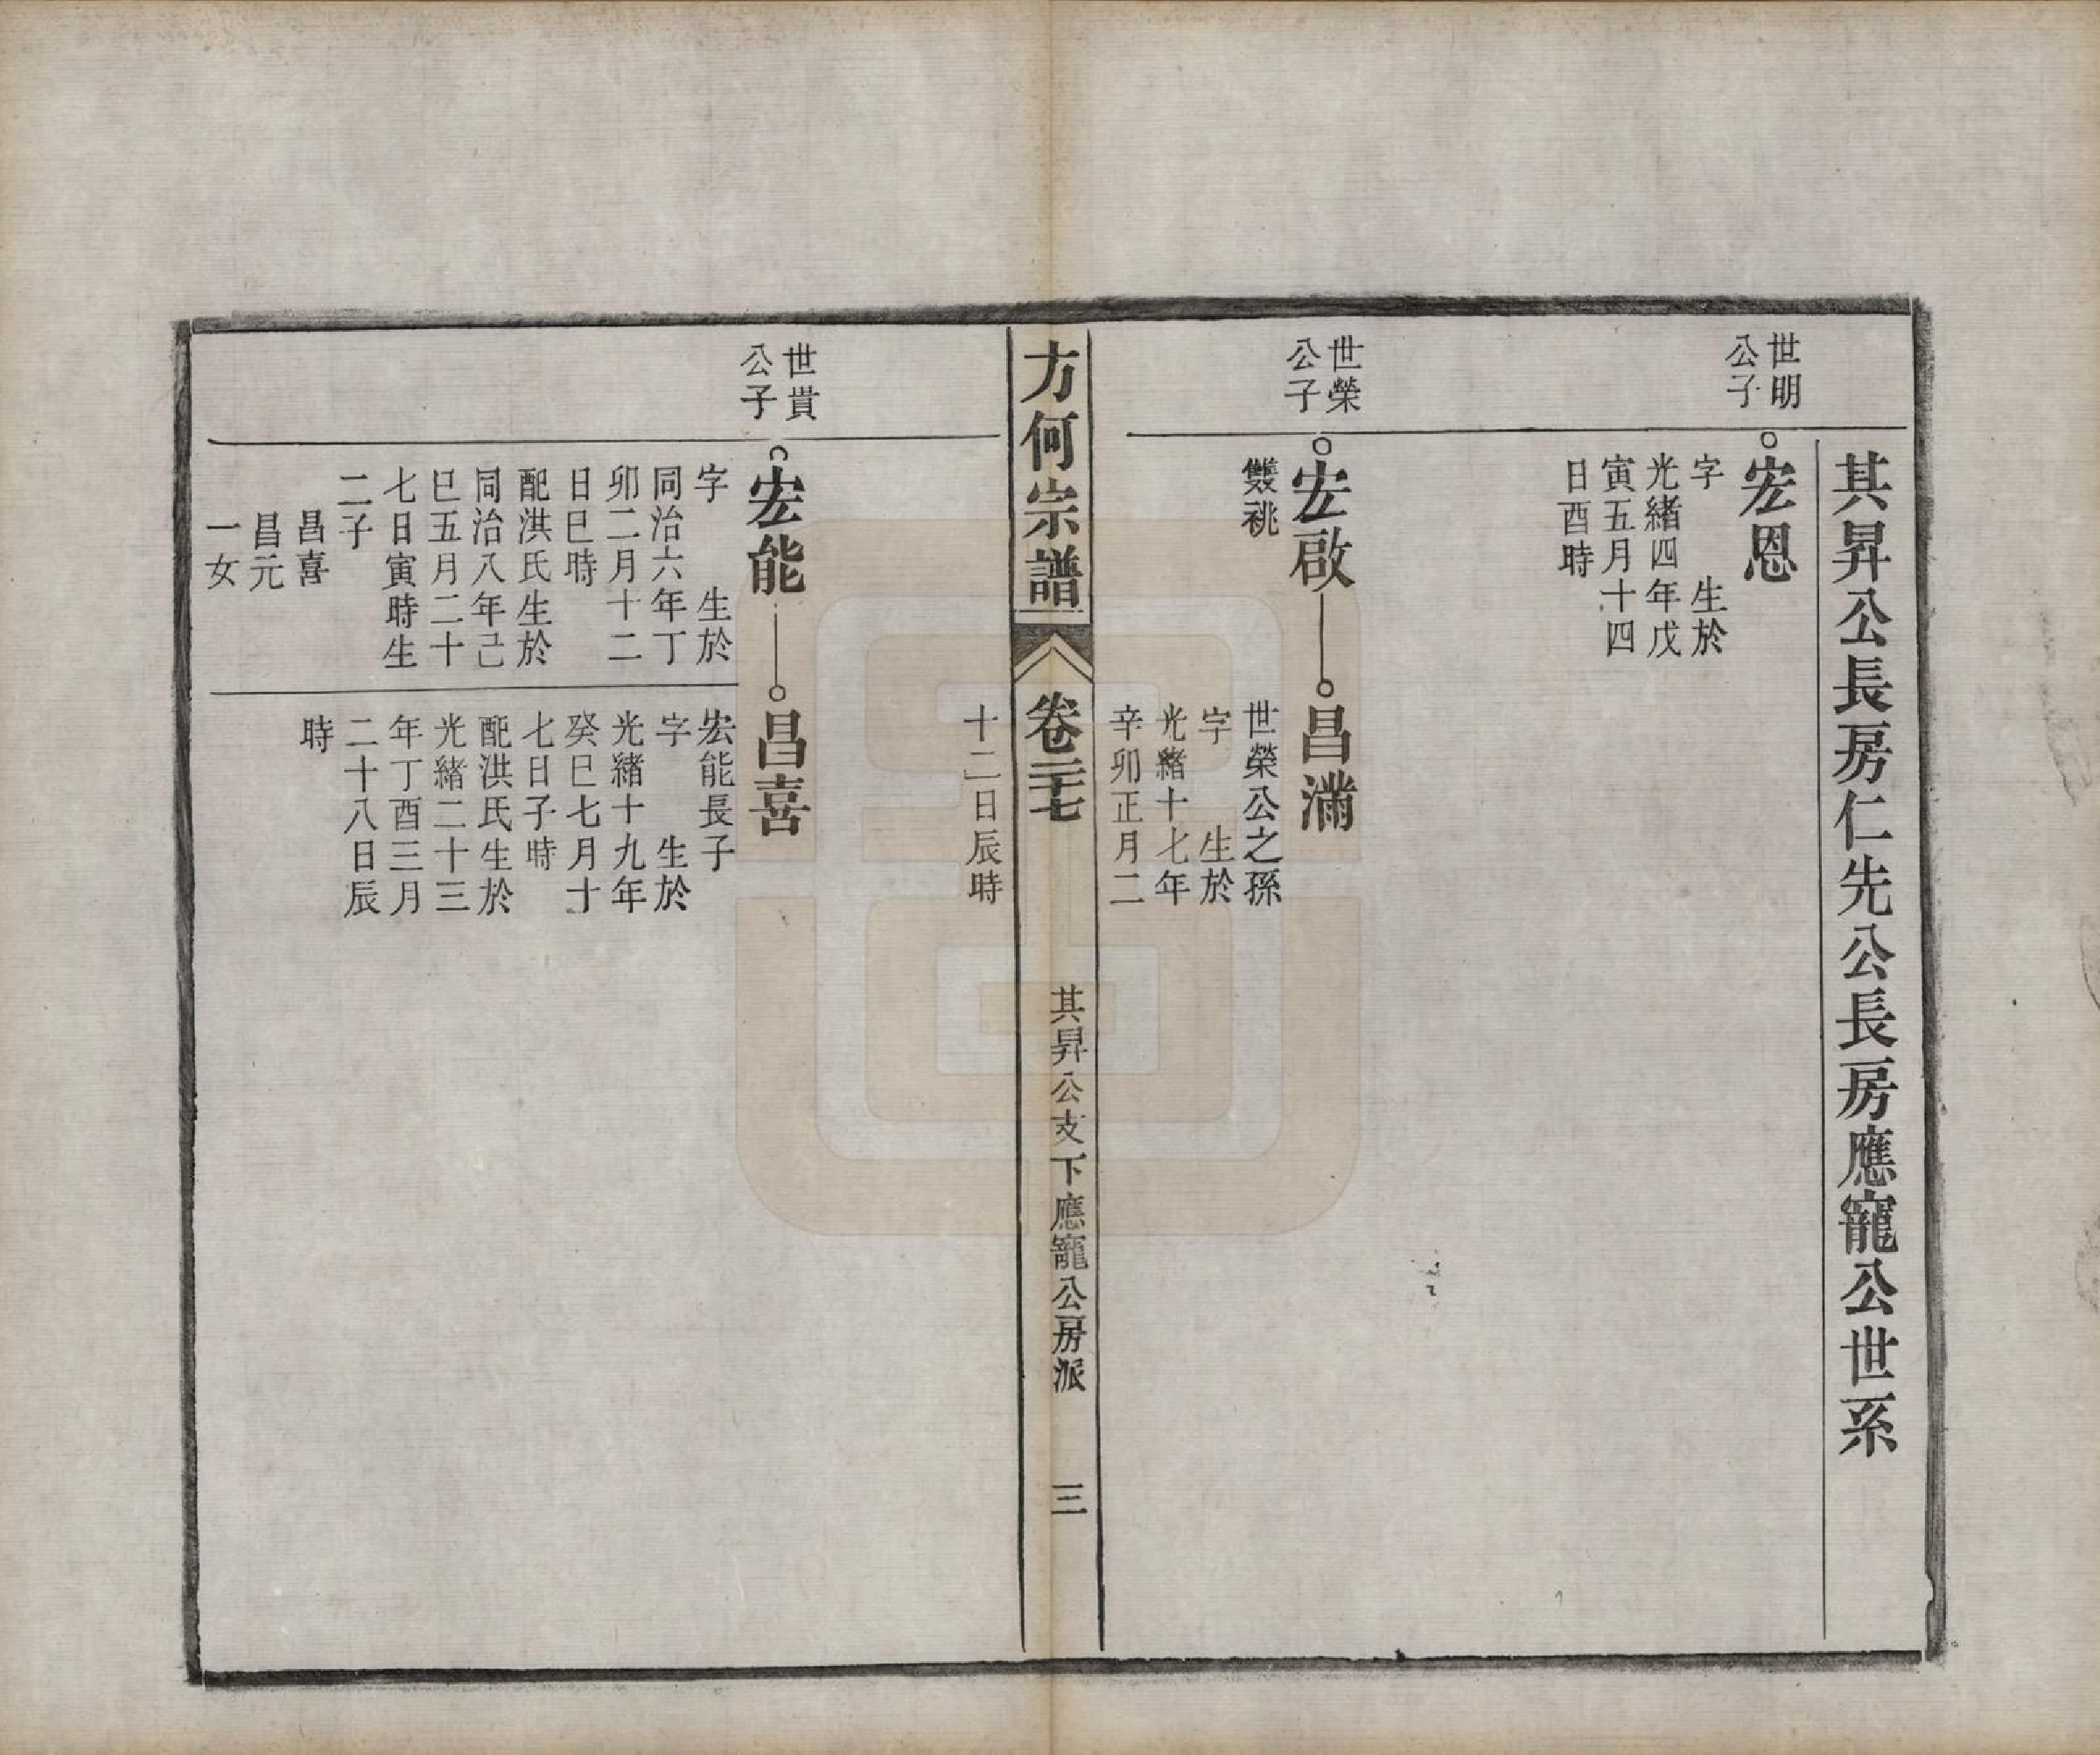 其昇公長房仁先公長房應寵公世系
世明
公子
宏恩
字　生於
光緒四年戊
寅五月十四
日酉時
世榮
公子
宏啟
雙祧
昌滿
世榮公之孫
字　生於
光緒十七年
辛卯正月二
十二日辰時
方何宗譜
卷二十七
其昇公支下應寵公房派
三
世貴
公子
宏能
字　生於
同治六年丁
卯二月十二
日巳時
配洪氏生於
同治八年己
巳五月二十
七日寅時生
二子
昌喜
昌元
一女
昌喜
宏能長子
字　生於
光緒十九年
癸巳七月十
七日子時
配洪氏生於
光緒二十三
年丁酉三月
二十八日辰
時